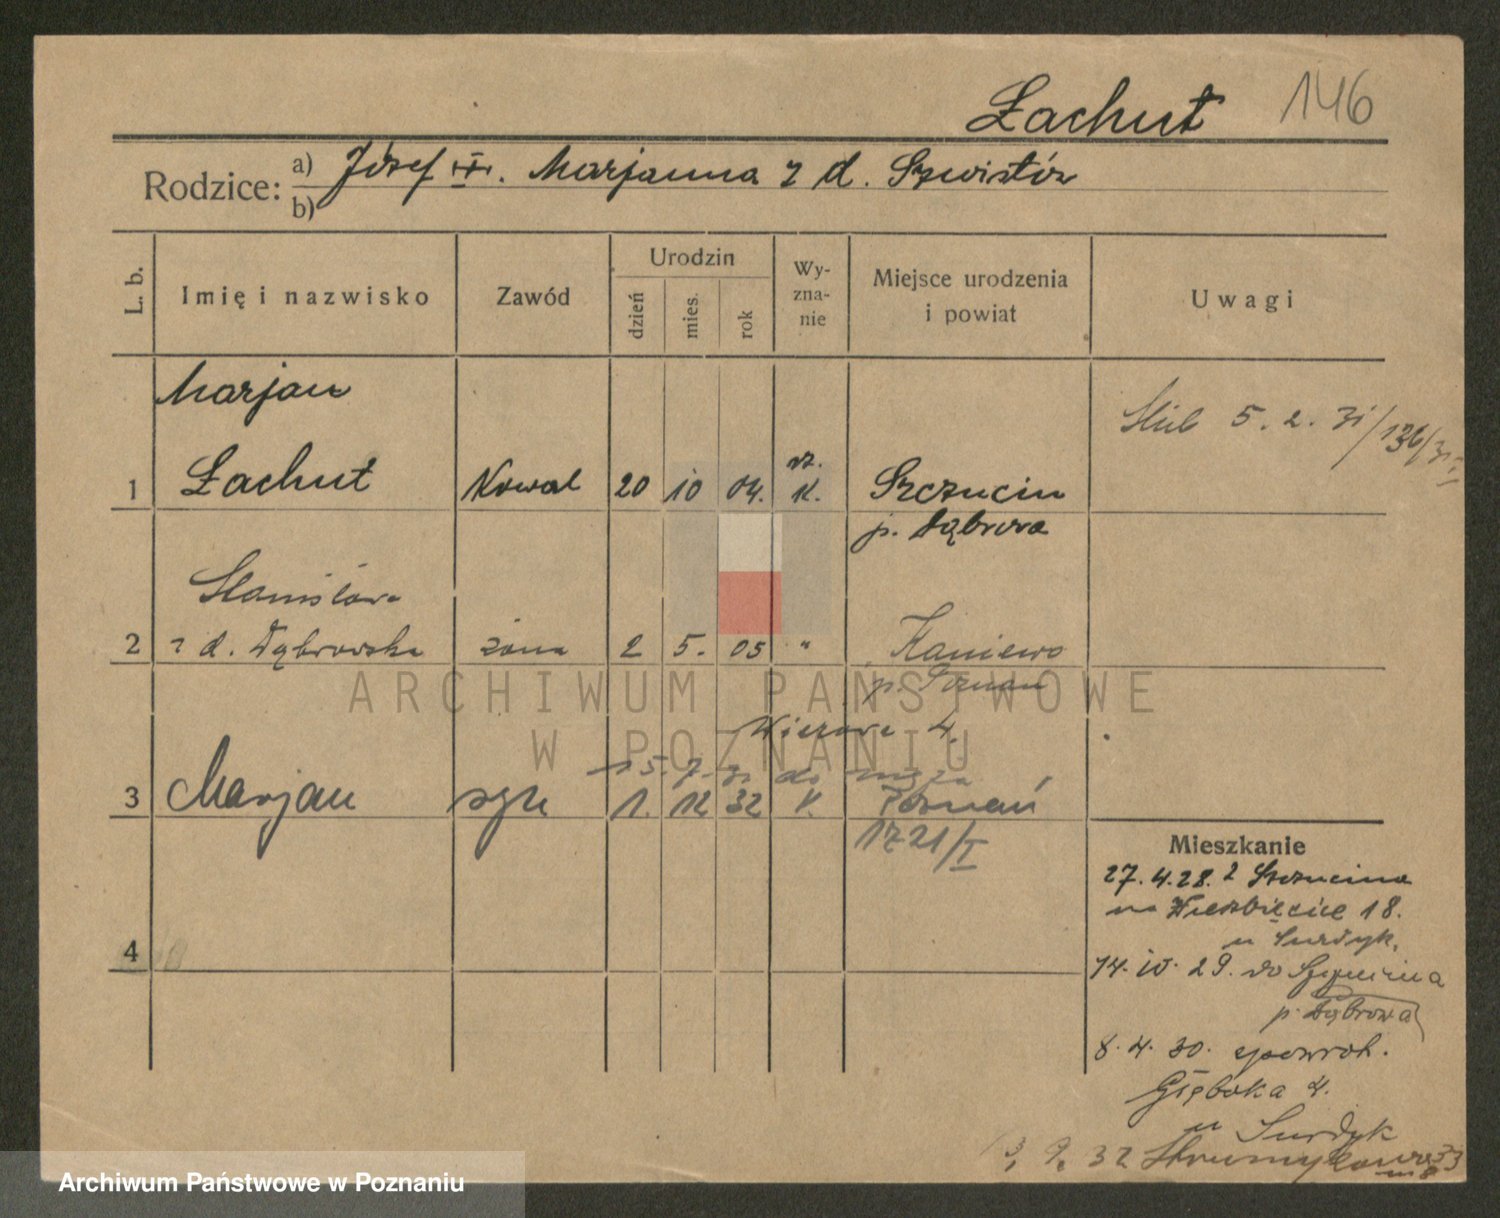 Łachut 146
Rodzice: a) Józef Marjanna z d. Szwistów
b)
L. b. Imię i nazwisko Zawód Urodzin dzień mies. rok Wy-zna-nie Miejsce urodzenia i powiat Uwagi
Marjan
Ślub 5. 2. 31/136/31
1 Łachut Kowal 20 10 04. rz. K. Szczucin
p. Dąbrowa
Stanisława
2 z d. Dąbrowska żona 2 5. 05 " Kaniewo
p. Poznań
ARCHIWUM PAŃSTWOWE
4.
W POZNANIU
15. 7. 31 do męża
3 Marjan syn 1. 12 32 K. Poznań
1721/I
Mieszkanie
27. 4. 28. z Szczucina
na Wierzbięcice 18.
u Surdyk.
4
14. 10. 29. do Szczucina
p. Dąbrowa
8. 4. 30. spowrot.
Głęboka 4.
u Surdyk
3. 9. 32 Strumykowa 33
m 8
Archiwum Państwowe w Poznaniu